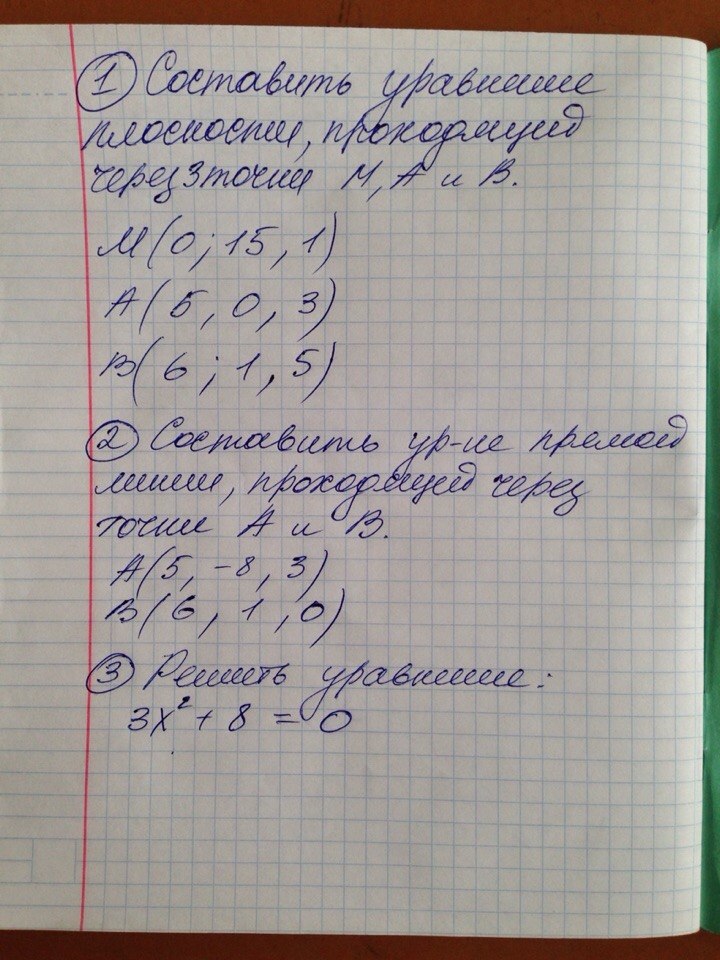 1 Составить уравнение
плоскости, проходящей
через 3 точки М, А и В.
М(0; 15, 1)
А(5, 0, 3)
В(6; 1, 5)
2 Составить ур-ие прямой
линии, проходящей через
точки А и В.
А(5, -8, 3)
В(6, 1, 0)
3 Решить уравнение:
3x² + 8 = 0